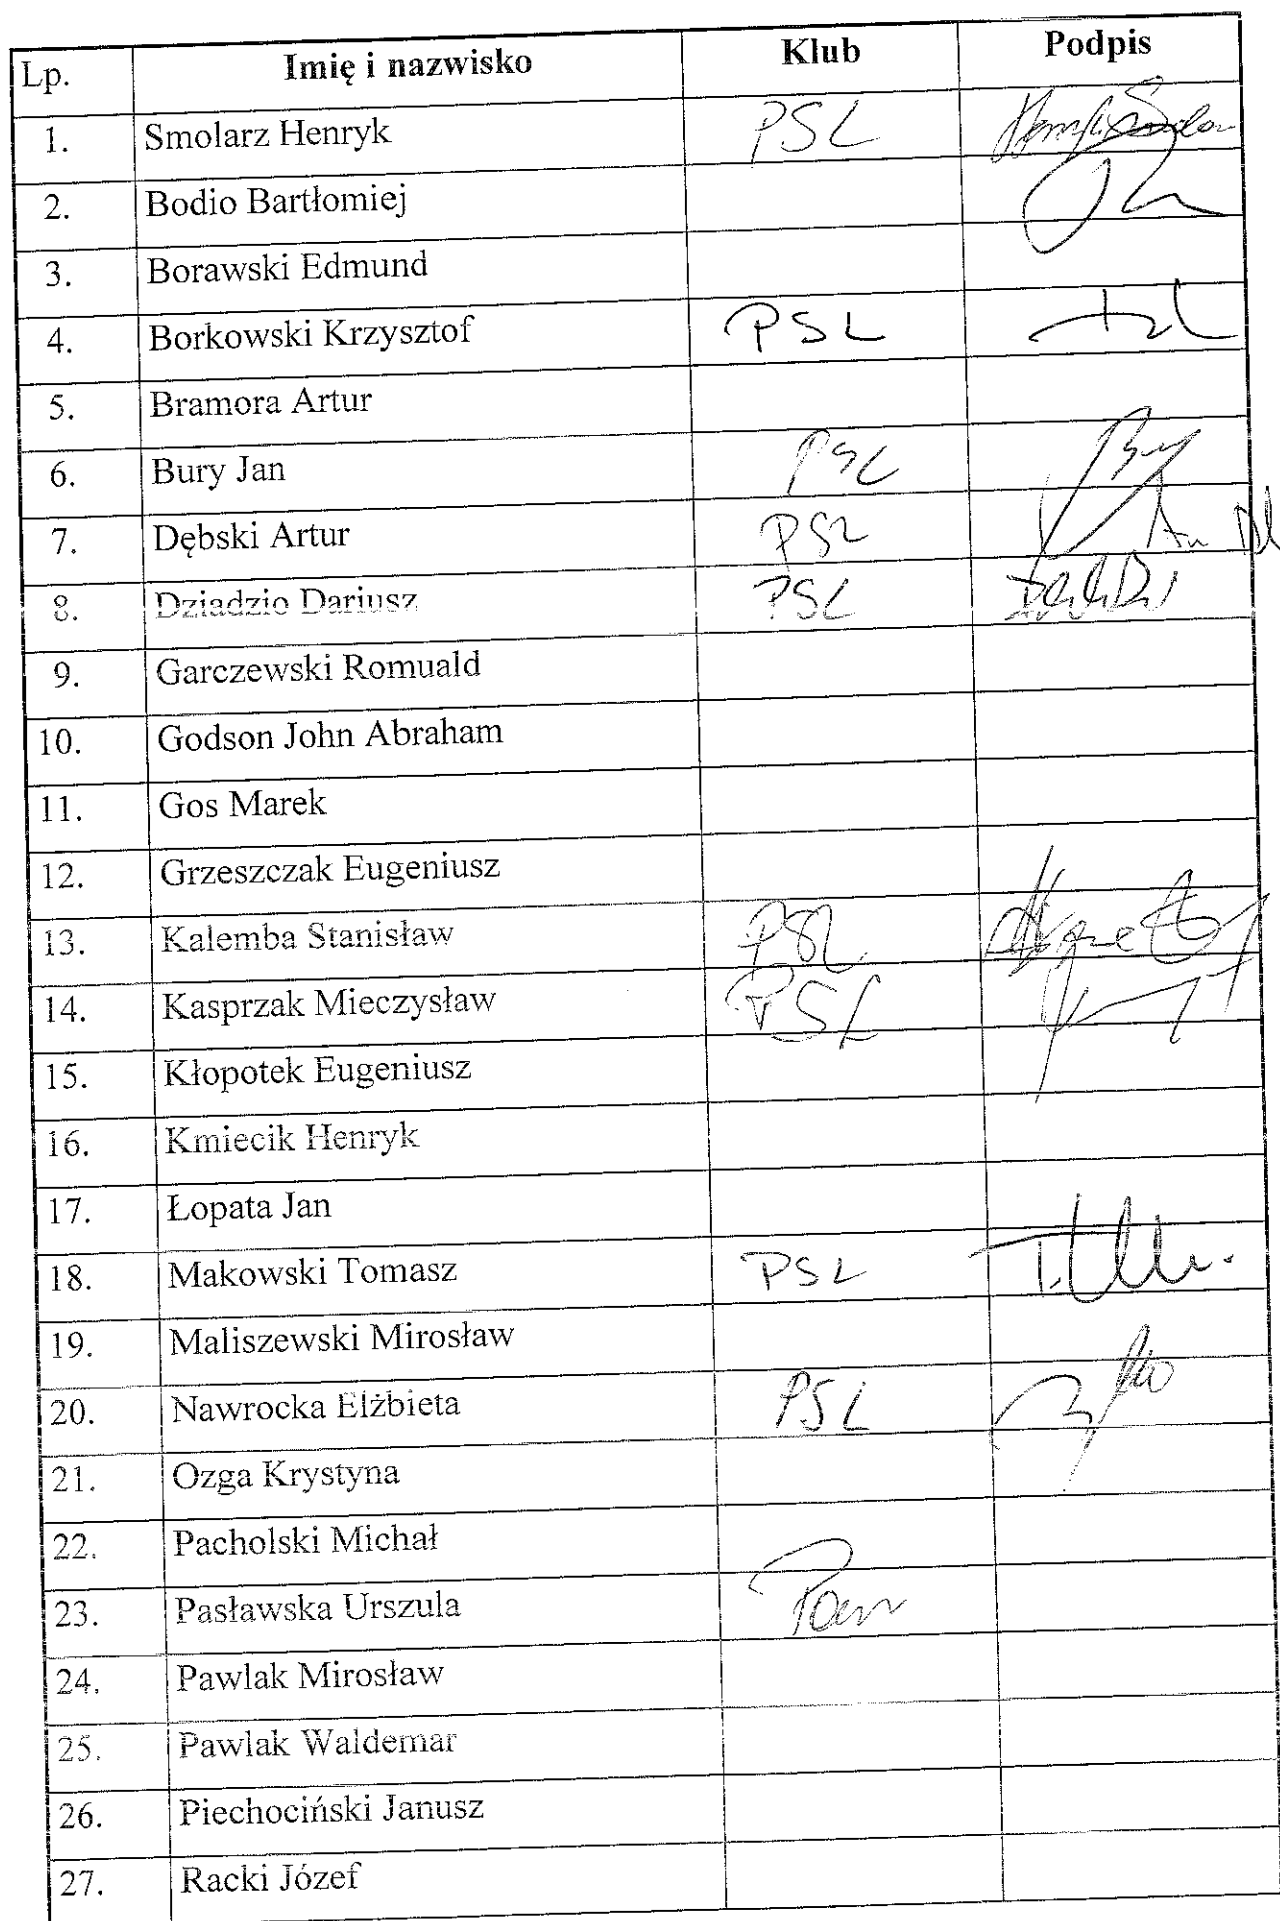 Lp. Imię i nazwisko Klub Podpis
1. Smolarz Henryk PSL
2. Bodio Bartłomiej
3. Borawski Edmund
4. Borkowski Krzysztof PSL
5. Bramora Artur
6. Bury Jan PSL
7. Dębski Artur PSL
8. Dziadzio Dariusz PSL
9. Garczewski Romuald
10. Godson John Abraham
11. Gos Marek
12. Grzeszczak Eugeniusz
13. Kalemba Stanisław PSL
14. Kasprzak Mieczysław PSL
15. Kłopotek Eugeniusz
16. Kmiecik Henryk
17. Łopata Jan
18. Makowski Tomasz PSL
19. Maliszewski Mirosław
20. Nawrocka Elżbieta PSL
21. Ozga Krystyna
22. Pacholski Michał
23. Pasławska Urszula
24. Pawlak Mirosław
25. Pawlak Waldemar
26. Piechociński Janusz
27. Racki Józef